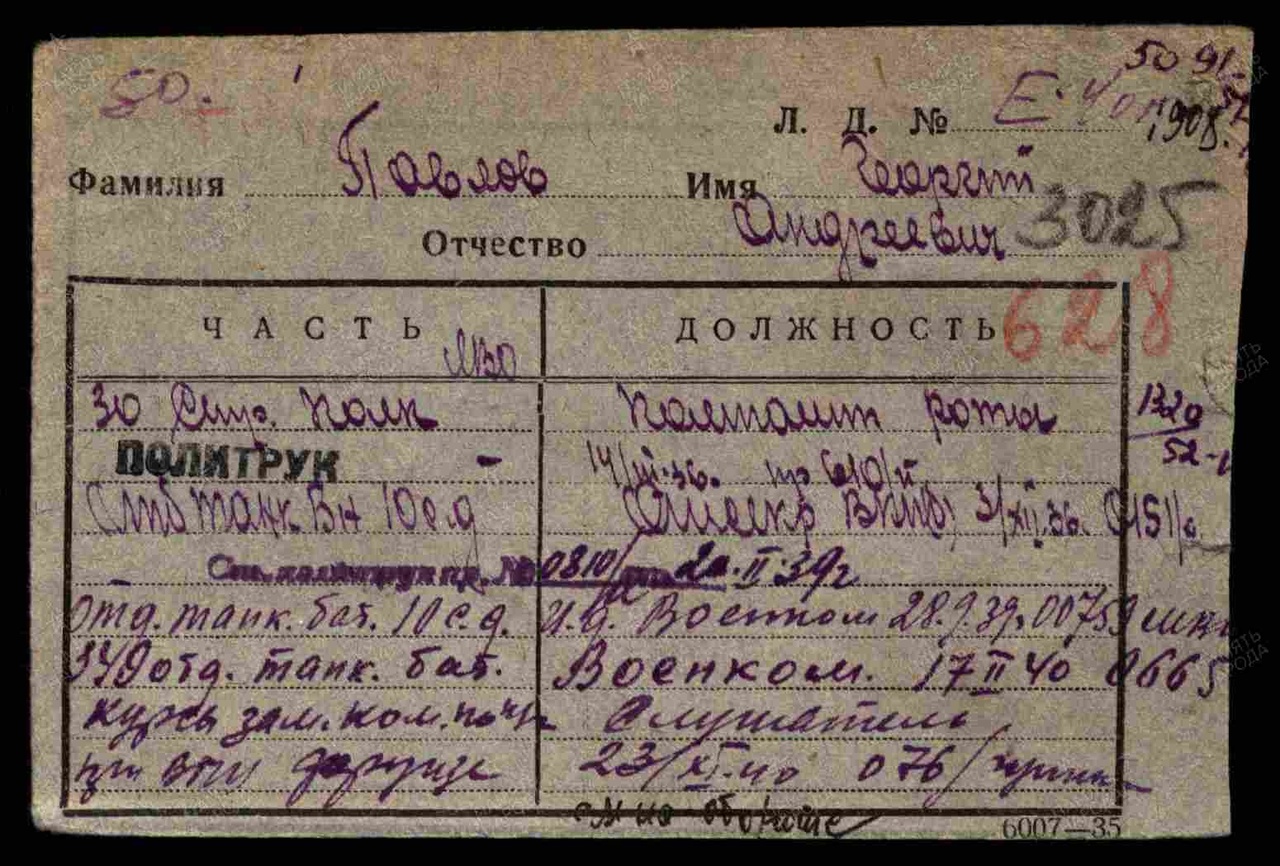 50.
50 91
Л. Д. №
1908.
Фамилия Павлов Имя Георгий
3025
Отчество Андреевич
628
ЧАСТЬ ДОЛЖНОСТЬ
30 Стр. полк Политрук роты
132а
52
ПОЛИТРУК - 14/III-36. пр 610/п
10 с.д 3/XII.36. 0151/
Ст. политрук пр. № 0810/ 20.II.39г
Отд. танк. бат. 10 с.д. И.д. Военком 28.9.39. 00759
349 отд. танк. бат. Военком. 17 II 40 0665
курсы зам. ком. по ч/п Слушатель
при 23/XI.40 076/
см на обороте
6007—35